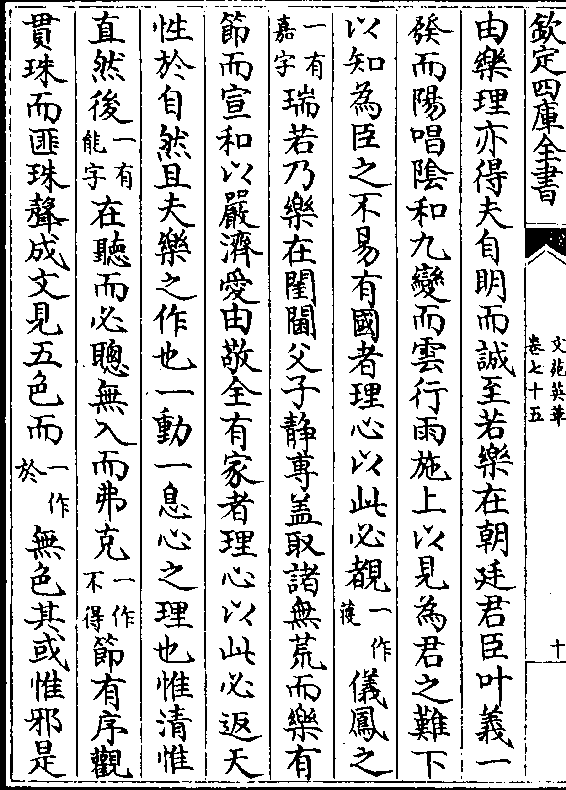 欽定四庫全書
文苑英華
卷七十五
十
由樂理亦得夫自明而誠至若樂在朝廷君臣叶義一
發而陽唱陰和九變而雲行雨施上以見為君之難下
以知為臣之不易有國者理心以此必覩一作獲儀鳳之
一有嘉字瑞若乃樂在閨閫父子静専盖取諸無荒而樂有
節而宣和以嚴濟愛由敬全有家者理心以此必返天
性於自然且夫樂之作也一動一息心之理也惟清惟
直然後一有能字在聽而必聰無入而弗克一作不得節有序觀
貫珠而匪珠聲成文見五色而一作於無色其或惟邪是